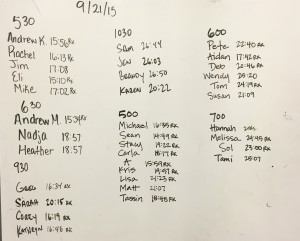 9/21/15
530
Andrew K. 15:56 Rx
Rachel 16:13 Rx
Jim 17:08
Eli 15:10 Rx
Mike 17:02 Rx
630
Andrew M. 15:34 Rx
Nadja 18:57
Heather 18:57
930
Greg 16:34 Rx
Sarah 20:15 Rx
Corey 16:19 Rx
Kathryn 16:46 Rx
1030
Sam 26:44
Jen 26:03
Brandy 26:50
Karen 20:22
500
Michael 16:35 Rx
Sean 14:49 Rx
Stacy 19:22 Rx
Carla 18:17 Rx
A 15:59 Rx
Kris 19:57 Rx
Lisa 21:23 Rx
Matt 21:07
Tassin 18:55 Rx
600
Pete 22:40 Rx
Aidan 17:42 Rx
Deb 22:46 Rx
Wendy 25:20
Tom 24:19 Rx
Susan 21:09
700
Hannah
Melissa 24:45 Rx
Sol 23:00 Rx
Tami 25:07